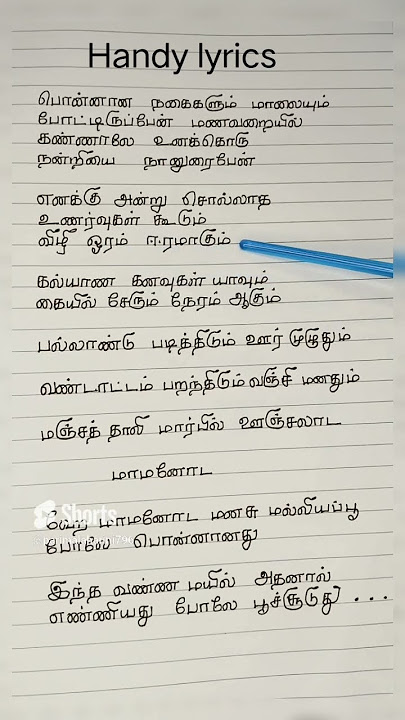 Handy lyrics
பொன்னான நகைகளும் மாலையும்
போட்டிருப்பேன் மணவறையில்
கண்ணாலே உனக்கொரு
நன்றியை நானுரைபேன்
எனக்கு அன்று சொல்லாத
உணர்வுகள் கூடும்
விழி ஓரம் ஈரமாகும்
கல்யாண கனவுகள் யாவும்
கையில் சேரும் நேரம் ஆகும்
பல்லாண்டு படித்திடும் ஊர் முழுதும்
வண்டாட்டம் பறந்திடும் வஞ்சி மனதும்
மஞ்சத் தாலி மார்பில் ஊஞ்சலாட
மாமனோட
Shorts
மாமனோட மனசு மல்லியப்பூ
போலே பொன்னானது
இந்த வண்ண மயில் அதனால்
எண்ணியது போலே பூச்சூடுது ...